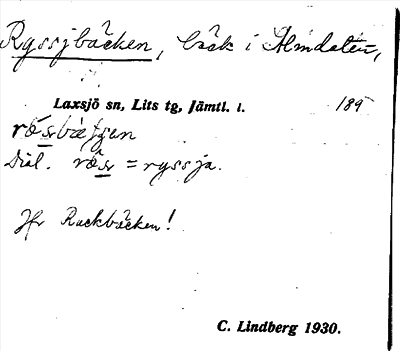 Ryssjbäcken, bäck i Almdalen,
Laxsjö sn, Lits tg, Jämtl. l. 189
Dial. = ryssja.
Jfr Rackbäcken!
C. Lindberg 1930.